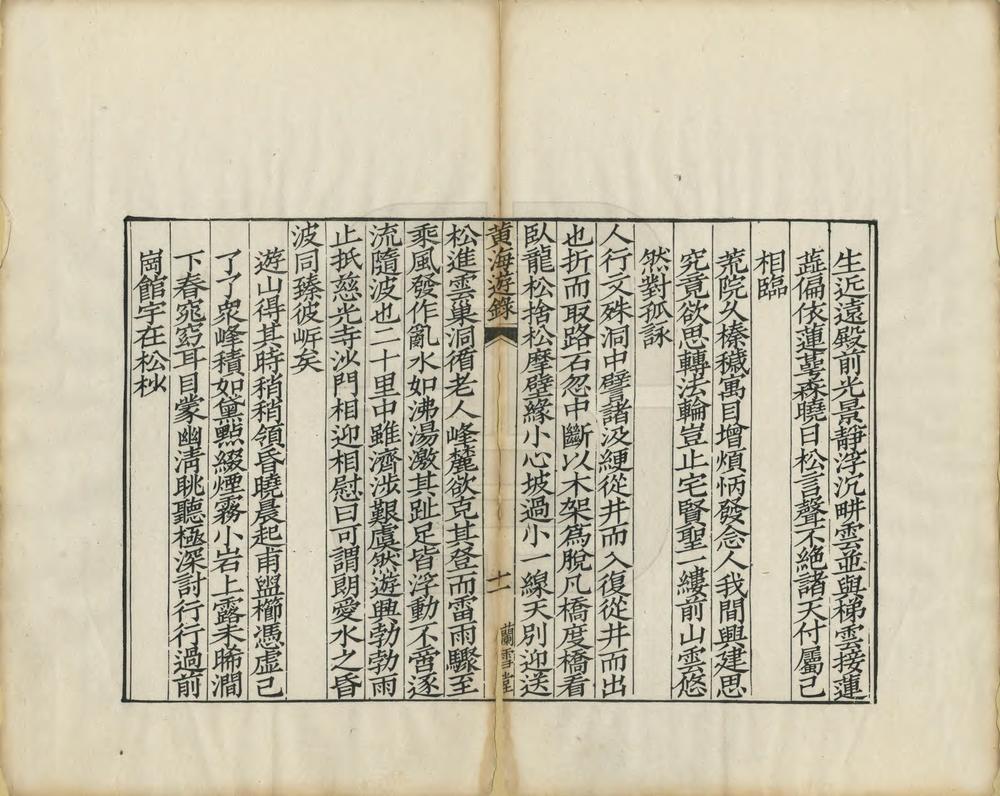 生近遠殿前光景靜浮沉畊雲並與梯雲接蓮
蕋偏依蓮莖森曉日松言聲不絕諸天付屬已
相臨
荒院久榛穢寓目增煩怲發念人我間興建思
究竟欲思轉法輪豈止宅賢聖一縷前山雲悠
然對孤詠
人行文殊洞中譬諸汲綆從井而入復從井而出
也折而取路石忽中斷以木架為脫凡橋度橋看
臥龍松捨松摩壁緣小心坡過小一線天別迎送
黃海遊錄
十一
蘭雪堂
松進雲巢洞循老人峰麓欲克其登而雷雨驟至
乘風發作亂水如沸湯激其趾足皆浮動不啻逐
流隨波也二十里中雖濟涉艱虞然遊興勃勃雨
止扺慈光寺沙門相迎相慰曰可謂朗愛水之昏
波同臻彼岍矣
遊山得其時稍稍領昏曉晨起甫盥櫛馮虛已
了了衆峰積如黛點綴煙霧小岩上露未晞澗
下春窕窈耳目蒙幽清眺聽極深討行行過前
崗館宇在松杪